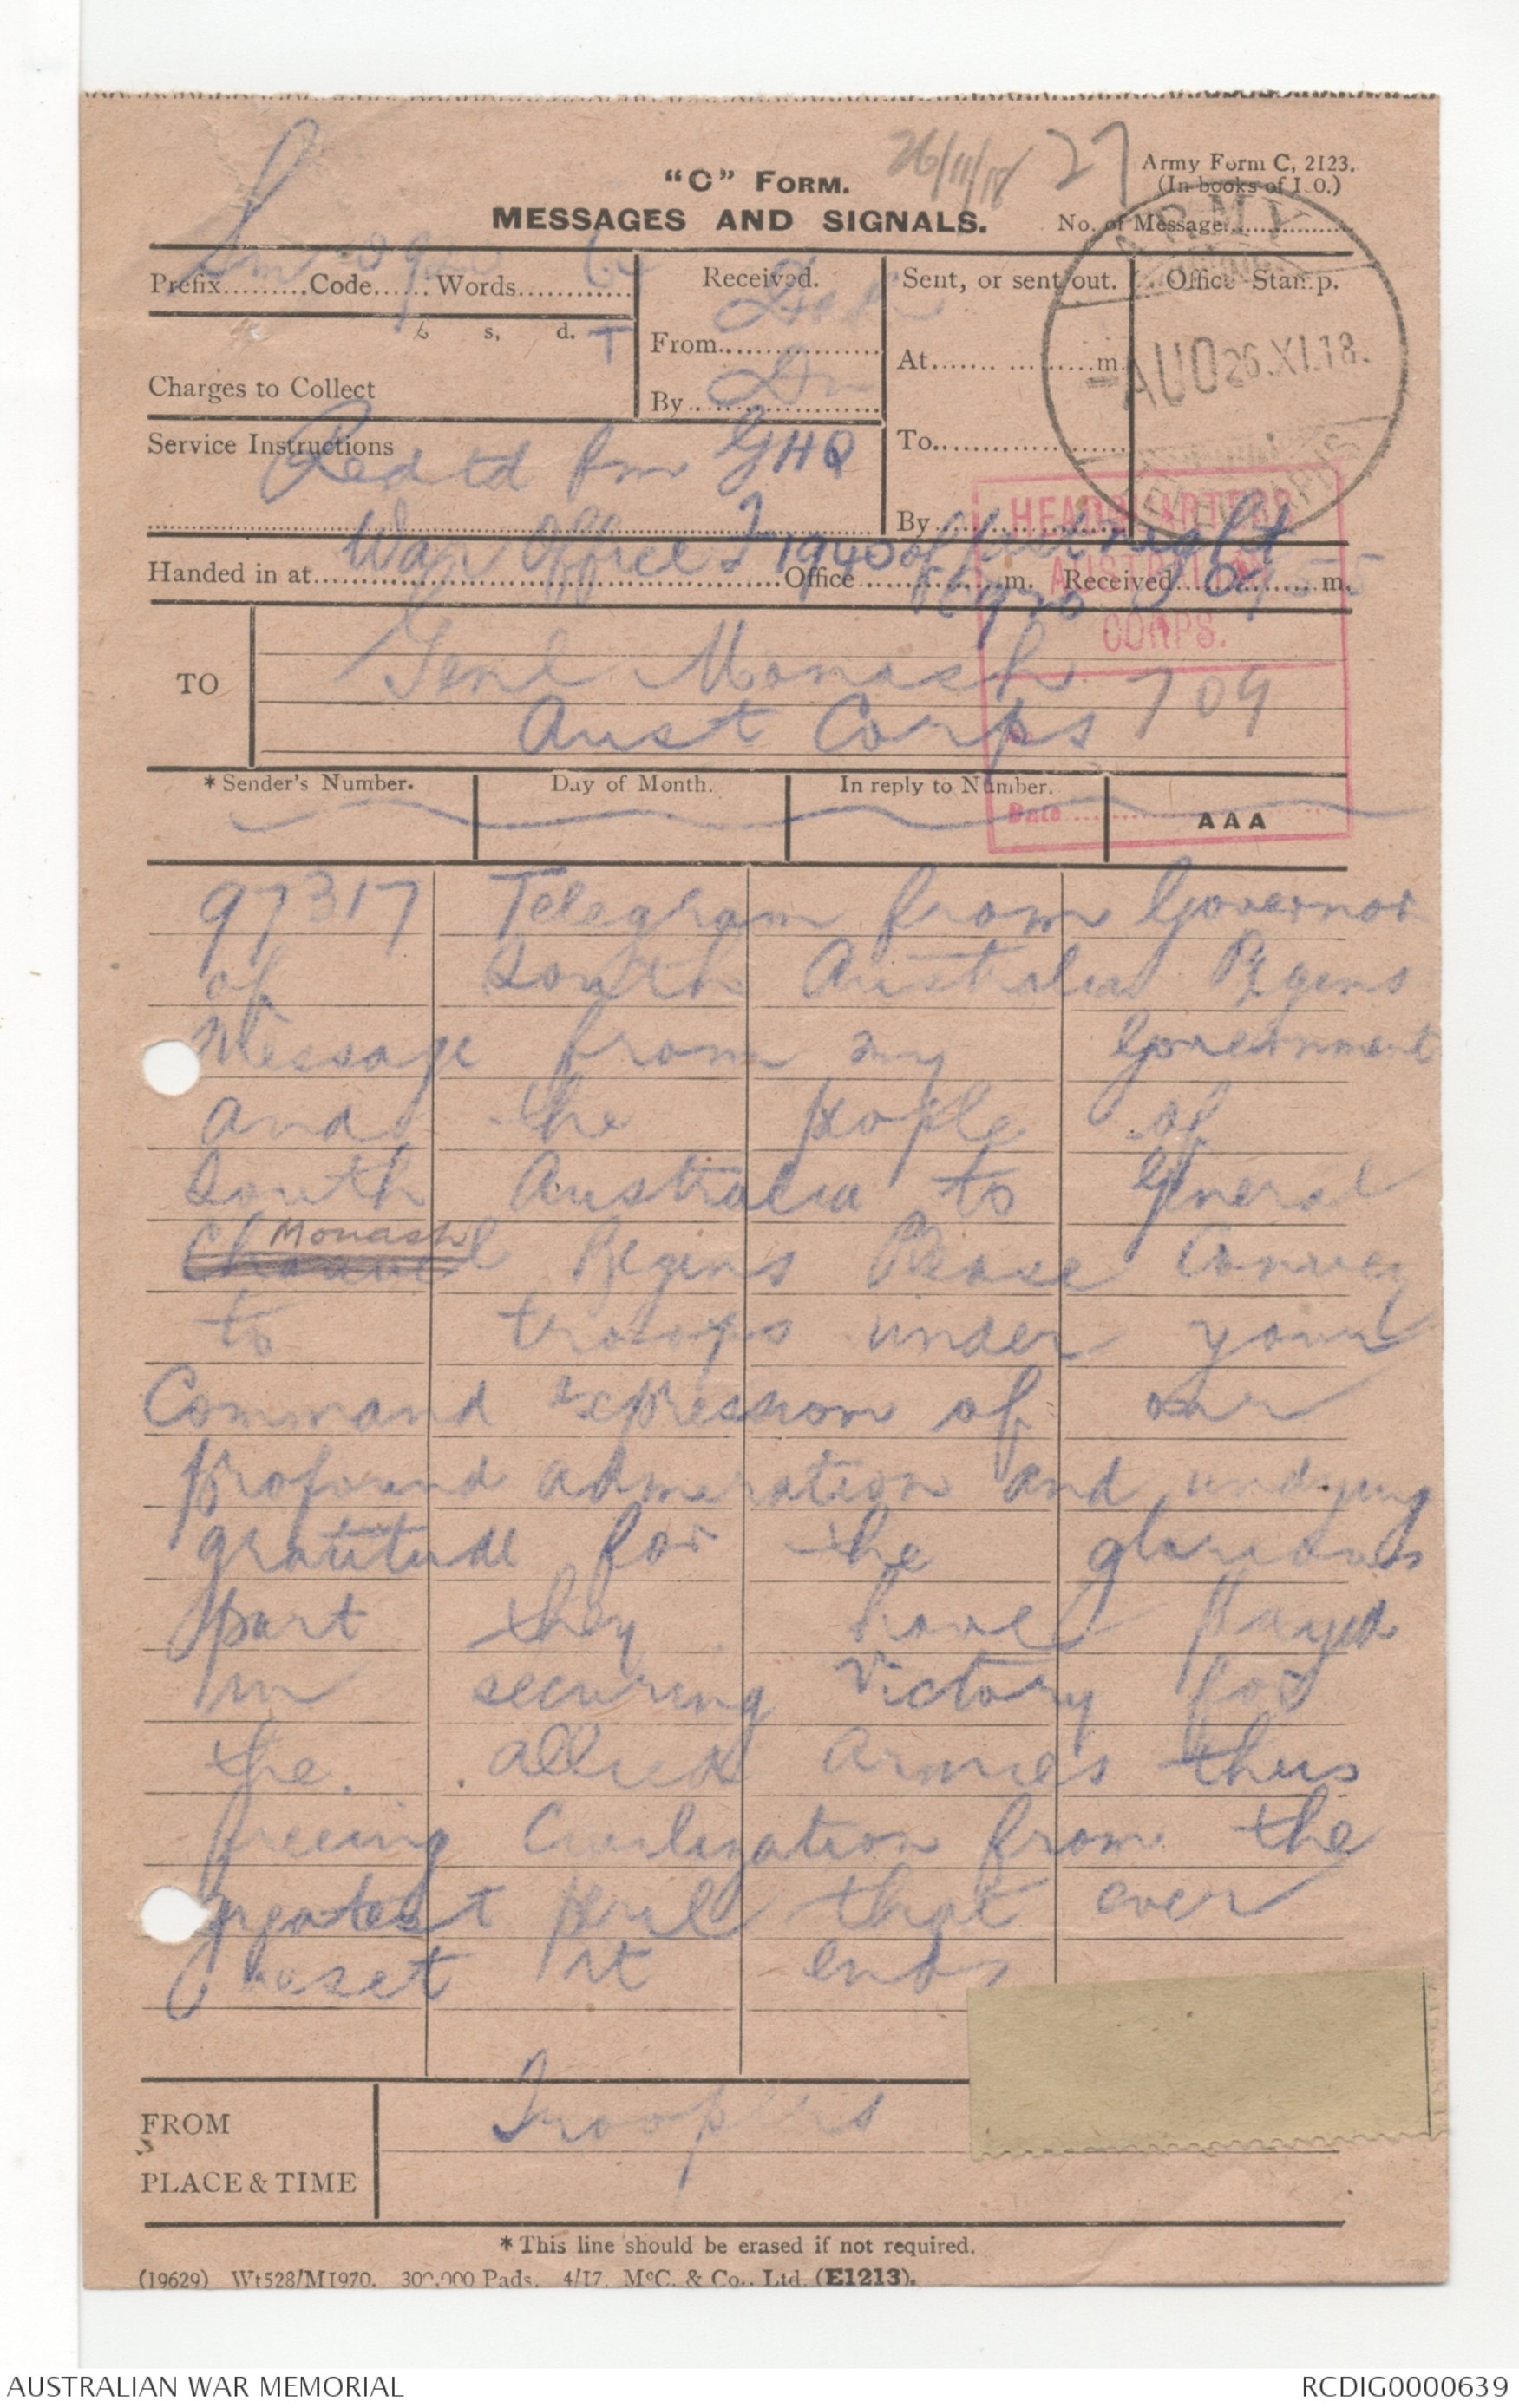 26/11/18 27
Army Form C, 2123.
(In books of 1.0.)
"C" FORM.
MESSAGES AND SIGNALS.
No. of Message
Prefix Code Words
Received.
Sent, or sent out.
Office Stamp.
ARMY
AUO 26.XI.18.
£ s. d.
From
At m.
Charges to Collect
By
Service Instructions
GHQ
To
By
HEADQUARTERS
AUSTRALIAN
CORPS.
Date
Handed in at War Office Office m. Received m.
TO
Genl Monash
Aust Corps 709
* Sender's Number. Day of Month. In reply to Number. AAA
97317 Telegram from Governor
of South Australia Begins
Message from my Government
and the people of
South Australia to General
Monash
Chauvel Begins Please Convey
to troops under your
Command expression of our
profound admiration and undying
gratitude for the glorious
part they have played
in securing victory for
the allied armies thus
freeing Civilization from the
greatest peril that ever
beset it ends
FROM Troopers
PLACE & TIME
* This line should be erased if not required.
(19629) Wt528/M1970. 300,000 Pads. 4/17. McC. & Co., Ltd. (E1213).
AUSTRALIAN WAR MEMORIAL
RCDIG0000639